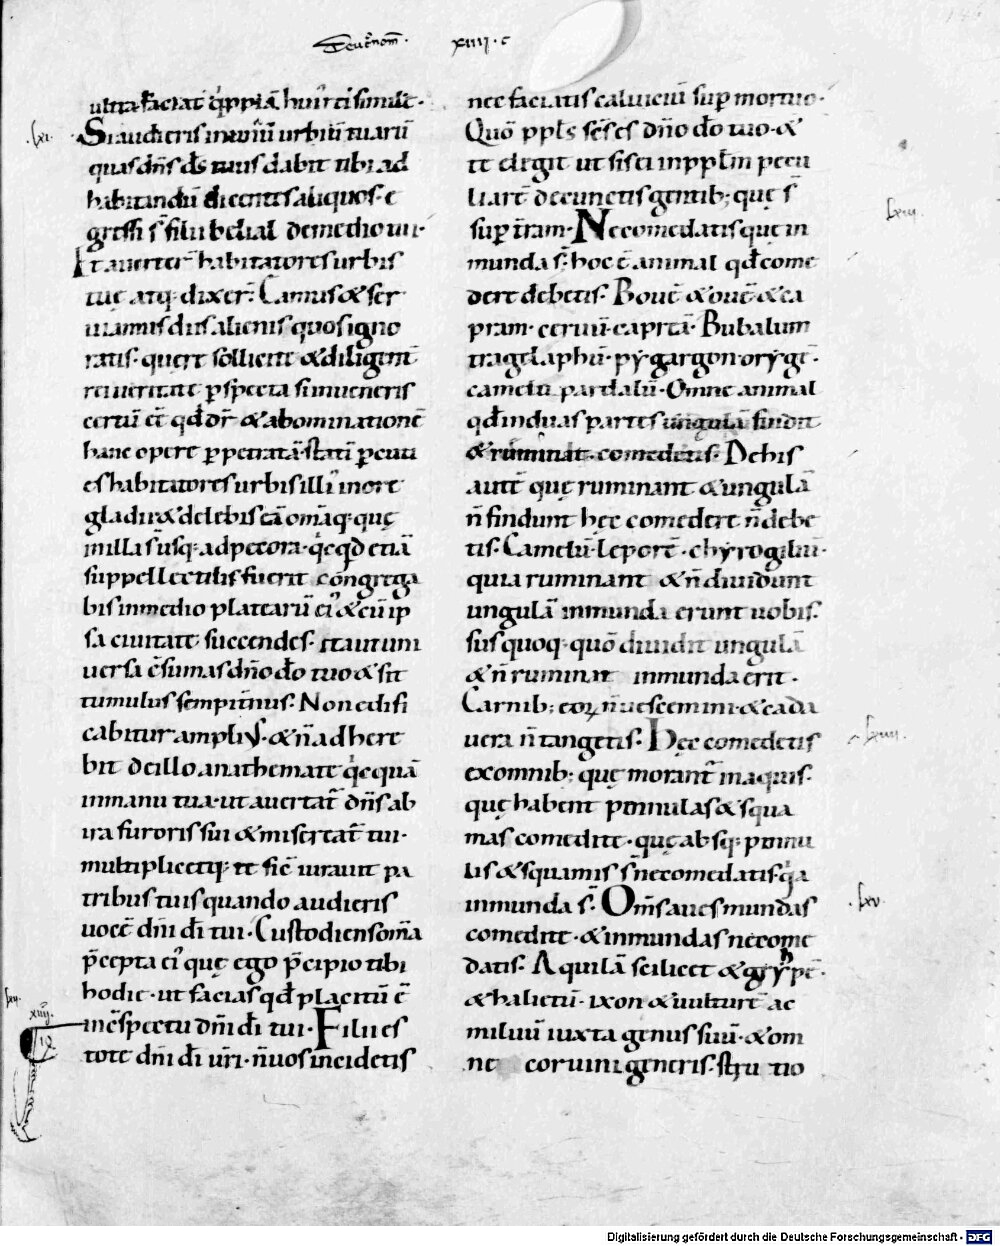 Deut̄nom̄. xiiii. c
ultra faciat q̇ppiā hui᷒ rei simile.
.lxi. Si audieris in una urbiū tuarū
quas dn̄s ds̄ tuus dabit tibi ad
habitandū dicentes aliquos. e
gressi s̄ filii belial de medio tui.
Et auerter̄ habitatores urbis
tuę atq; dixer̄. Eamus & ser
uiamus diis alienis quos igno
ratis. quere sollicite & diligent̄
rei ueritate p̱specta si inueneris
certū eē qd̄ dr̄ & abominationē
hanc opere p̱petratā. statī p̱cuti
es habitatores urbis illi᷒ in ore
gladii & delebis eā om̄aq; quę
in illa s̄ usq; ad pecora. q̇cq̇d etiā
suppellectilis fuerit congrega
bis in medio platearū ei᷒ & cū ip
sa ciuitate succendes. ita ut uni
uersa c̄sumas dn̄o dō tuo & sit
tumulus sempit̄nus. Non edifi
cabitur ampli᷒. & n̄ adhere
bit de illo anathemate q̇cquā
in manu tua. ut auertat᷑ dn̄s ab
ira furoris sui & misereat᷑ tui.
multiplicetq; te sic̄ iurauit pa
tribus tuis quando audieris
uocē dn̄i dī tui. Custodiens om̄a
p̄cepta ei᷒ quę ego p̄cipio tibi
hodie. ut facias qd̄ placitū ē
lxii. xiiij. in c̄spectu dn̄i dī tui. Filii es
tote dn̄i dī ur̄i. n̄ uos incidetis
nec facietis caluiciū sup̱ mortuo.
Quō pp̱ls sc̄s es dn̄o dō tuo. &
te elegit ut sis ei in pp̱lm̄ pecu
liarē de cunctis gentib; quę s̄
sup̱ t̄ram. Ne comedatis que in .lxiii.
munda s̄. hoc ē animal qd̄ come
dere debetis. Bouē & ouē & ca
pram. ceruū. capreā. Bubalum
tragelaphū. pẏgargon. orẏgē.
camelū pardalū. Omne animal
qd̄ in duas partes ungulā findit
& ruminat. comedetis. De his
autē quę ruminant & ungulā
n̄ findunt hęc comedere n̄ debe
tis. Camelū. leporē. chẏrogiliū.
quia ruminant & n̄ diuidunt
ungulā inmunda erunt uobis.
sus quoq; quō diuidit ungulā
& n̄ ruminat inmunda erit.
Carnib; eoꝝ n̄ uescemini & cada
uera n̄ tangetis. Hęc comedetis .lxiiii.
ex omnib; quę morant᷑ in aquis.
quę habent pinnulas & squa
mas comedite. quę absq; pinnu
lis & squamis s̄ ne comedatis q̇a
inmunda s̄. Om̄s aues mundas .lxv.
comedite. & inmundas ne come
datis. Aquilā scilicet & grẏphē.
& halietū. ixon & uulturē ac
miluū iuxta genus suū. & om
ne corui ni generis. stru tio
Digitalisierung gefördert durch die Deutsche Forschungsgemeinschaft - DFG